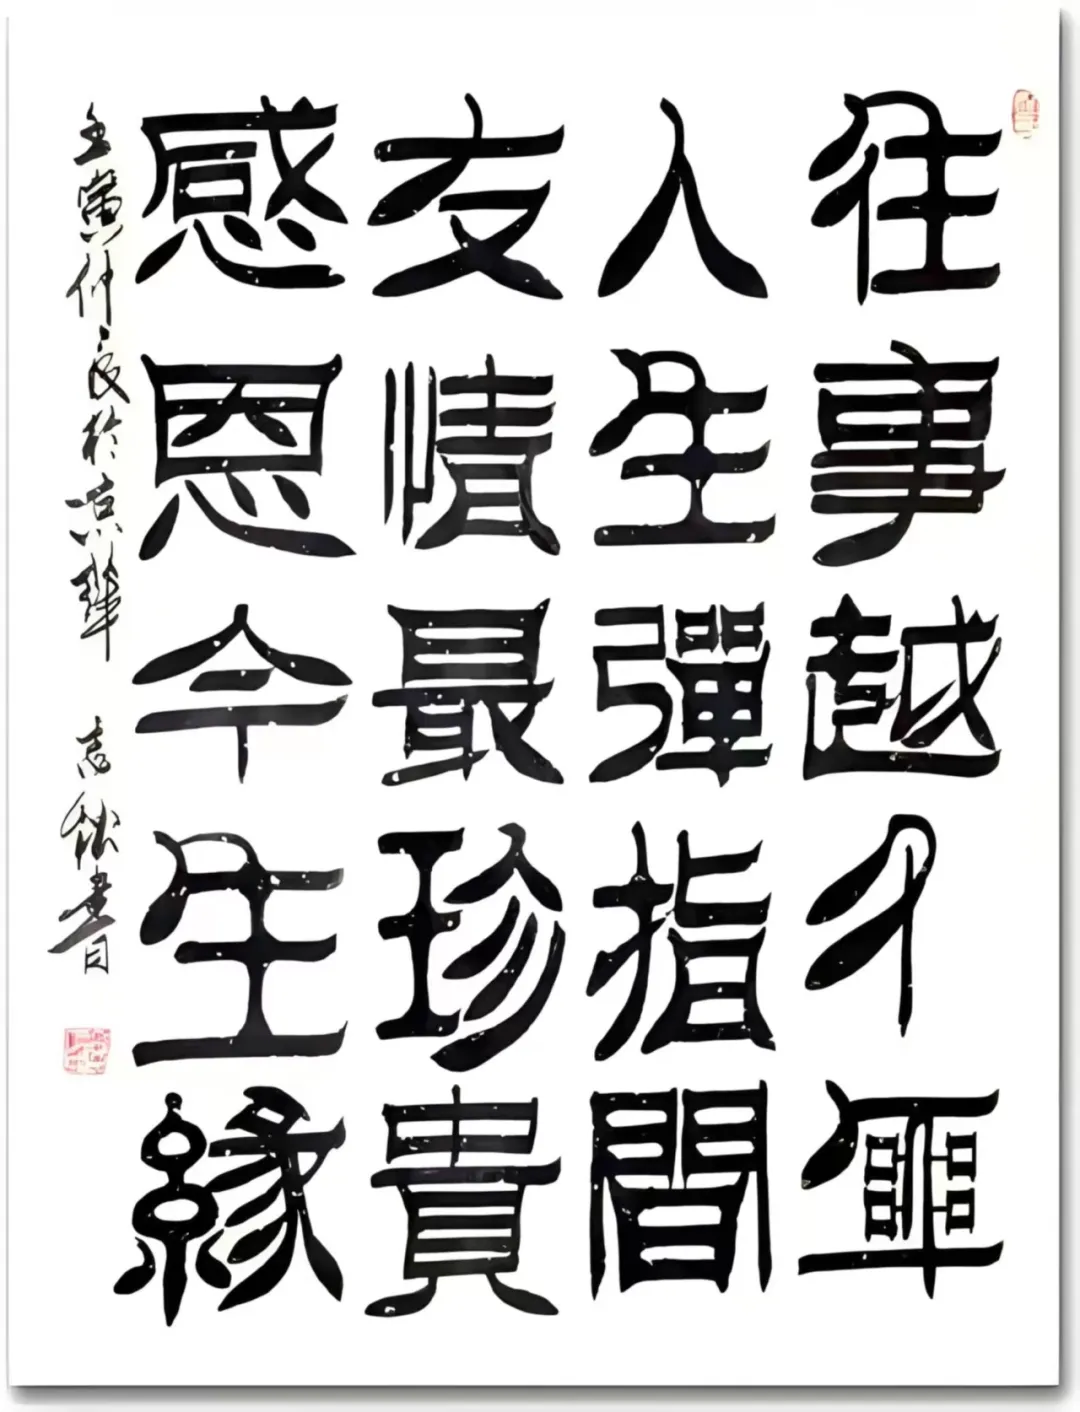 往事越
人生彈指間
友情最珍貴
感恩今生緣
壬寅仲良於京華
志書